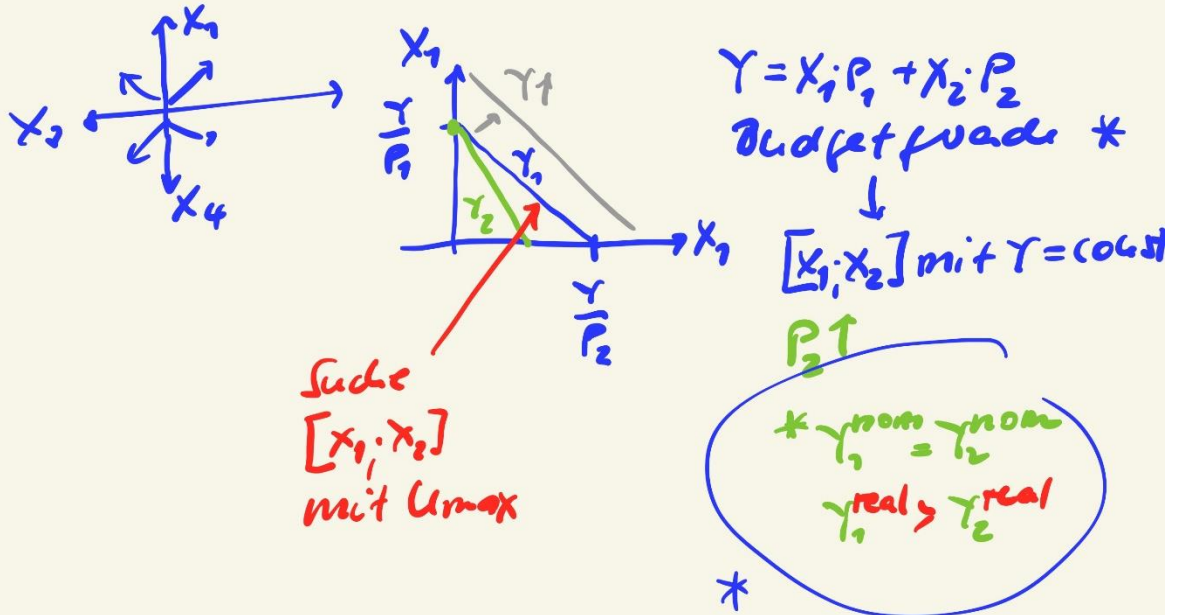 X₁
X₃
X₄
X₁
Y↑
Y/P₁
Y₁
Y₂
X₁
Y/P₂
Suche
[X₁; X₂]
mit Umax
Y = X₁·P₁ + X₂·P₂
Budgetgerade *
[X₁; X₂] mit Y = const
P₂↑
* Y₁ⁿᵒᵐ = Y₂ⁿᵒᵐ
Y₁ʳᵉᵃˡ > Y₂ʳᵉᵃˡ
*